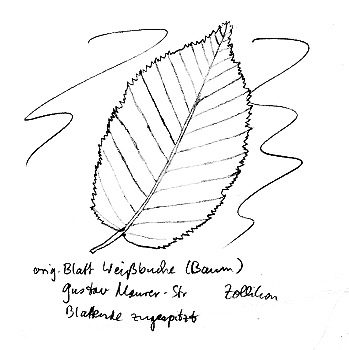 orig. Blatt Weißbuche (Baum)
Gustav Maurer-Str Zollikon
Blattende zugespitzt